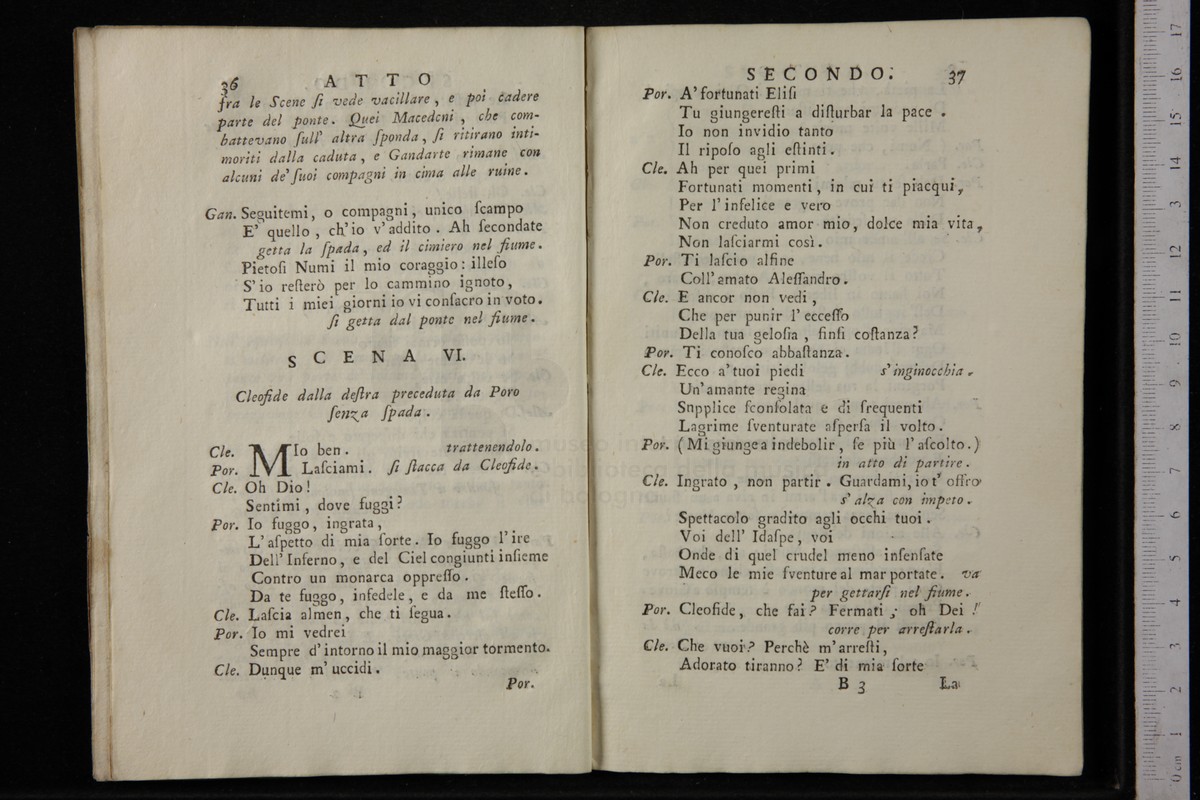 36 ATTO
fra le Scene ſi vede vacillare, e poi cadere
parte del ponte. Quei Macedoni, che com-
battevano ſull' altra ſponda, ſi ritirano inti-
moriti dalla caduta, e Gandarte rimane con
alcuni de' ſuoi compagni in cima alle ruine.
Gan. Seguitemi, o compagni, unico ſcampo
E' quello, ch' io v' addito. Ah ſecondate
getta la ſpada, ed il cimiero nel fiume.
Pietoſi Numi il mio coraggio: illeſo
S' io reſterò per lo cammino ignoto,
Tutti i miei giorni io vi conſacro in voto.
ſi getta dal ponte nel fiume.
SCENA VI.
Cleofide dalla deſtra preceduta da Poro
ſenza ſpada.
Cle. MIo ben. trattenendolo.
Por. Laſciami. ſi ſtacca da Cleofide.
Cle. Oh Dio!
Sentimi, dove fuggi?
Por. Io fuggo, ingrata,
L' aſpetto di mia ſorte. Io fuggo l' ire
Dell' Inferno, e del Ciel congiunti inſieme
Contro un monarca oppreſſo.
Da te fuggo, infedele, e da me ſteſſo.
Cle. Laſcia almen, che ti ſegua.
Por. Io mi vedrei
Sempre d' intorno il mio maggior tormento.
Cle. Dunque m' uccidi.
Por.
SECONDO. 37
Por. A' fortunati Eliſi
Tu giungereſti a diſturbar la pace.
Io non invidio tanto
Il ripoſo agli eſtinti.
Cle. Ah per quei primi
Fortunati momenti, in cui ti piacqui,
Per l' infelice e vero
Non creduto amor mio, dolce mia vita,
Non laſciarmi così.
Por. Ti laſcio alfine
Coll' amato Aleſſandro.
Cle. E ancor non vedi,
Che per punir l' ecceſſo
Della tua geloſia, finſi coſtanza?
Por. Ti conoſco abbaſtanza.
Cle. Ecco a' tuoi piedi s' inginocchia.
Un' amante regina
Snpplice ſconſolata e di frequenti
Lagrime ſventurate aſperſa il volto.
Por. (Mi giunge a indebolir, ſe più l' aſcolto.)
in atto di partire.
Cle. Ingrato, non partir. Guardami, io t' offro
s' alza con impeto.
Spettacolo gradito agli occhi tuoi.
Voi dell' Idaſpe, voi
Onde di quel crudel meno inſenſate
Meco le mie ſventure al mar portate. va
per gettarſi nel fiume.
Por. Cleofide, che fai? Fermati; oh Dei!
corre per arreſtarla.
Cle. Che vuoi? Perchè m' arreſti,
Adorato tiranno? E' di mia ſorte
B 3 La